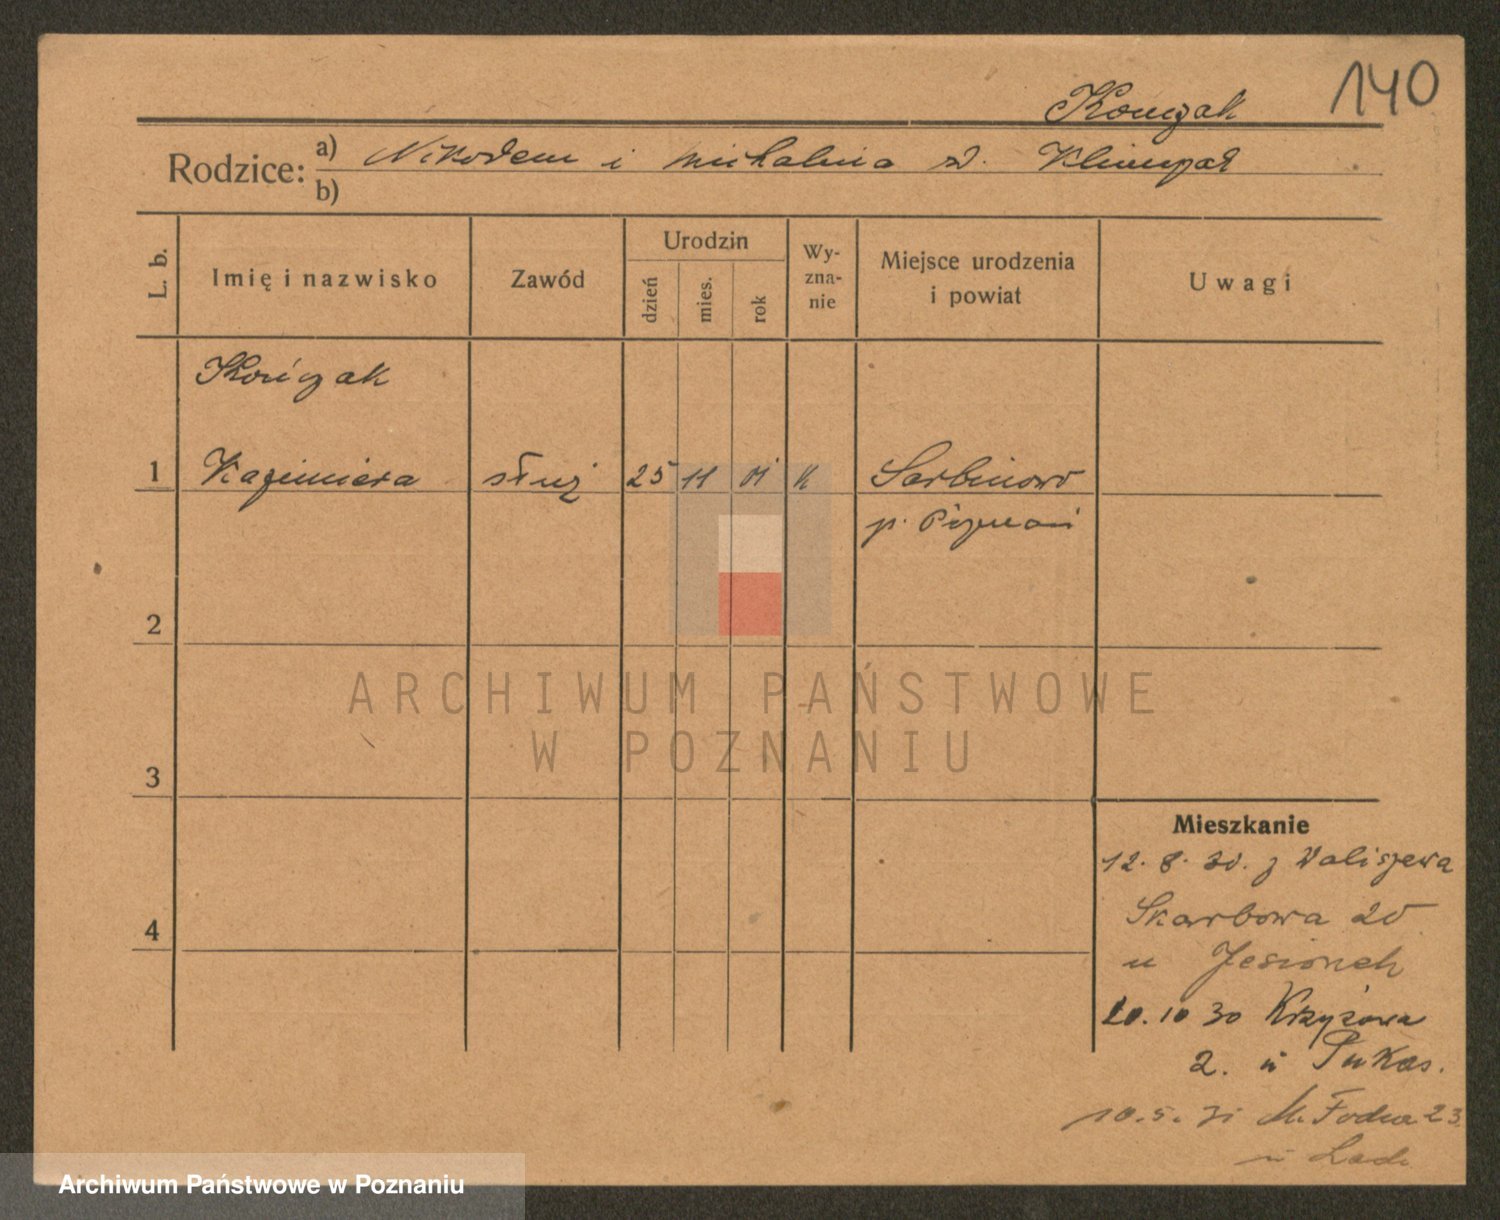 140
Kończak
Rodzice: a) Nikodem i Michalina z d. Klimpel
b)
L. b. Imię i nazwisko Zawód Urodzin dzień mies. rok Wyznanie Miejsce urodzenia i powiat Uwagi
Kończak
1 Kazimiera służ 25 11 01 K Sarbinowo
p. Poznań
2
ARCHIWUM PAŃSTWOWE
W POZNANIU
3
Mieszkanie
12.8.30. z Waliszewa
4 Skarbowa 20
u Jesionek
20.10 30 Krzyżowa
2. u Pukas.
10.5.31 23
u
Archiwum Państwowe w Poznaniu